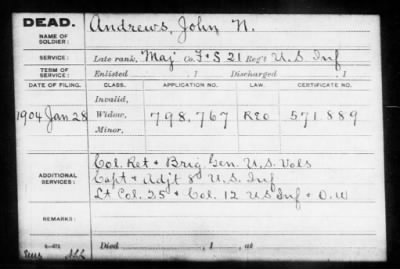 DEAD.
NAME OF SOLDIER:
Andrews, John N.
SERVICE:
Late rank, Maj Co. F+S 21 Reg't U.S. Inf
TERM OF SERVICE:
Enlisted , 1 Discharged , 1
DATE OF FILING. CLASS. APPLICATION NO. LAW. CERTIFICATE NO.
Invalid,
1904 Jan 28 Widow, 798,767 Reo 571889
Minor,
ADDITIONAL SERVICES:
Col. Ret + Brig Gen U.S. Vols
Capt + Adjt 8 U.S. Inf
Lt Col. 25 + Col. 12 US Inf + O.W
REMARKS:
Died , 1 , at